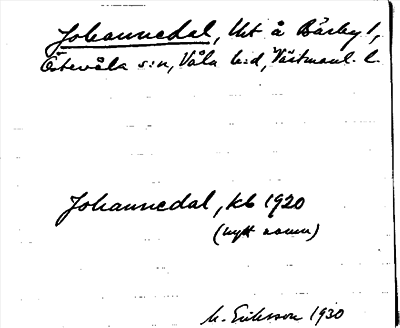 Johannedal, Ut å Bärby 1,
Östervåla s:n, Våla h:d, Västmanl. l.
Johannedal, kb 1920
(nytt namn)
M. Eriksson 1930